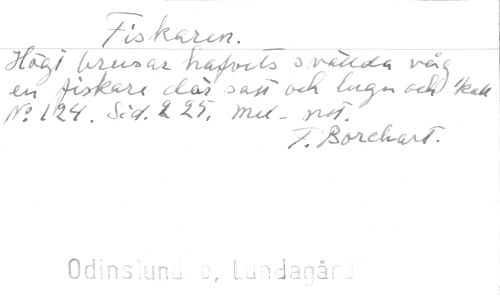 Fiskaren.
Högt brusar hafvets svällda våg
en fiskare där satt och lugn och kall
No. 124. Sid. 225. mel. not.
F. Borchart.
Odinslund o, Lundagård